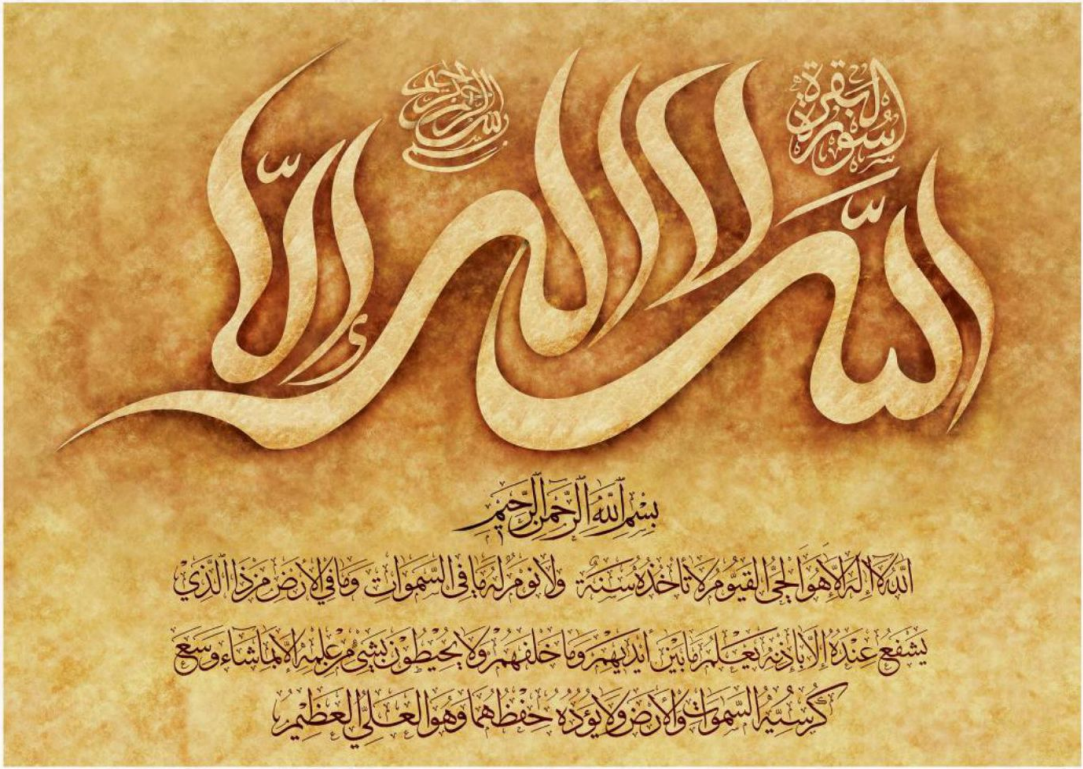 سورة البقرة
بسم الله الرحمن الرحيم
الله لا إله إلا
بِسْمِ اللهِ الرَّحْمٰنِ الرَّحِيْمِ
الله لا إله إلا هو الحي القيوم لا تاخذه سنة ولا نوم له ما في السموات وما في الارض من ذا الذي
يشفع عنده إلا باذنه يعلم ما بين ايديهم وما خلفهم ولا يحيطون بشئ من علمه الا بما شاء وسع
كرسيه السموات والأرض ولا يؤده حفظهما وهو العلي العظيم